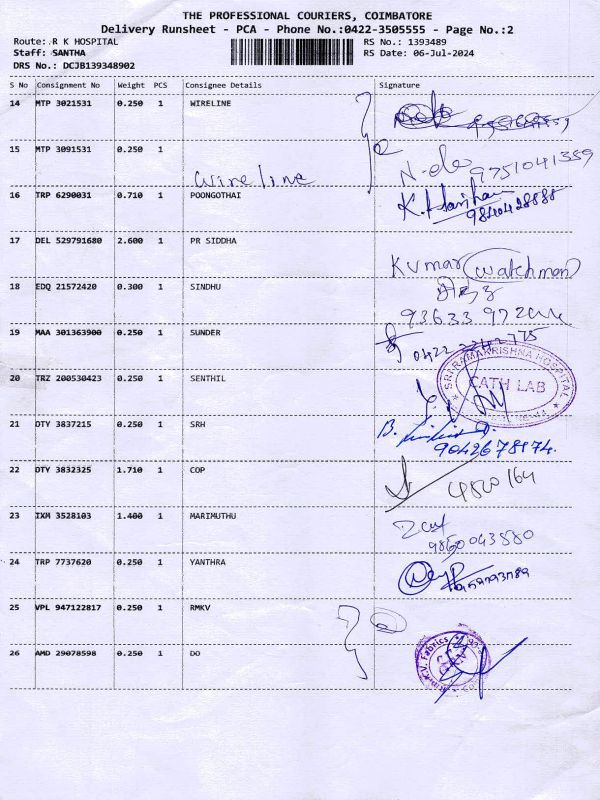 THE PROFESSIONAL COURIERS, COIMBATORE
Delivery Runsheet - PCA - Phone No.:0422-3505555 - Page No.:2
Route: R K HOSPITAL RS No.: 1393489
Staff: SANTHA RS Date: 06-Jul-2024
DRS No.: DCJB139348902
S No Consignment No Weight PCS Consignee Details Signature
14 MTP 3021531 0.250 1 WIRELINE
15 MTP 3091531 0.250 1
Wireline 9751041359
16 TRP 6290031 0.710 1 POONGOTHAI K. 9840428888
17 DEL 529791680 2.600 1 PR SIDDHA
Kumar (Watchman)
18 EDQ 21572420 0.300 1 SINDHU
93633 97
19 MAA 301363900 0.250 1 SUNDER 0422
SRI RAMAKRISHNA HOSPITAL
CATH LAB
20 TRZ 200530423 0.250 1 SENTHIL
21 DTY 3837215 0.250 1 SRH B.
9042678174.
22 DTY 3832325 1.710 1 COP
4800164
23 IXM 3528103 1.400 1 MARIMUTHU
9860043880
24 TRP 7737620 0.250 1 YANTHRA
25 VPL 947122817 0.250 1 RMKV
26 AMD 29078598 0.250 1 DO
Rm.K.V. Fabrics